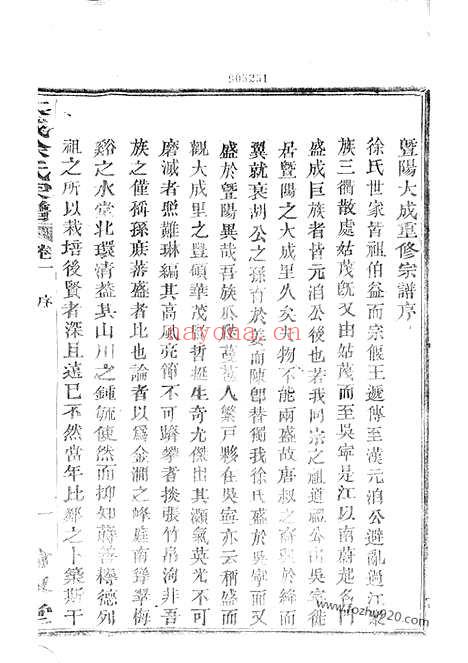 903251
暨陽大成重修宗譜序
徐氏世家皆祖伯益而宗偃王遞傳至漢元洎公避亂過江聚
族三衢散處姑茂旣又由姑茂而至吳寧是江以南蔚起名門
盛成巨族者皆元洎公後也若我同宗之祖道福公由吳寧徙
居暨陽之大成里久矣夫物不能兩盛故唐叔之裔興於晉而
翼就衰胡公之孫育於姜而陳卽替獨我徐氏盛於吳寧而又
盛於暨陽異哉吾族瓜瓞蕃人繁戸夥在吳寧亦云稱盛而
觀大成里之豐碩華茂明哲挺生奇尤傑出其灝氣英光不可
磨滅者照難琳編其高風亮節不可躋攀者掞張竹帛洵非吾
族之僅稱孫庭蕃盛者比也論者以為金澗之峰庭南聳翠梅
谿之水堂北環清葢其山川之鍾毓使然而抑知蔣善樹德列
祖之所以栽培後賢者深且遠已不然當年比鄰之卜築斯干
徐氏宗譜
卷一
序
一
堂
nayona.cn
www.fozhu920.com